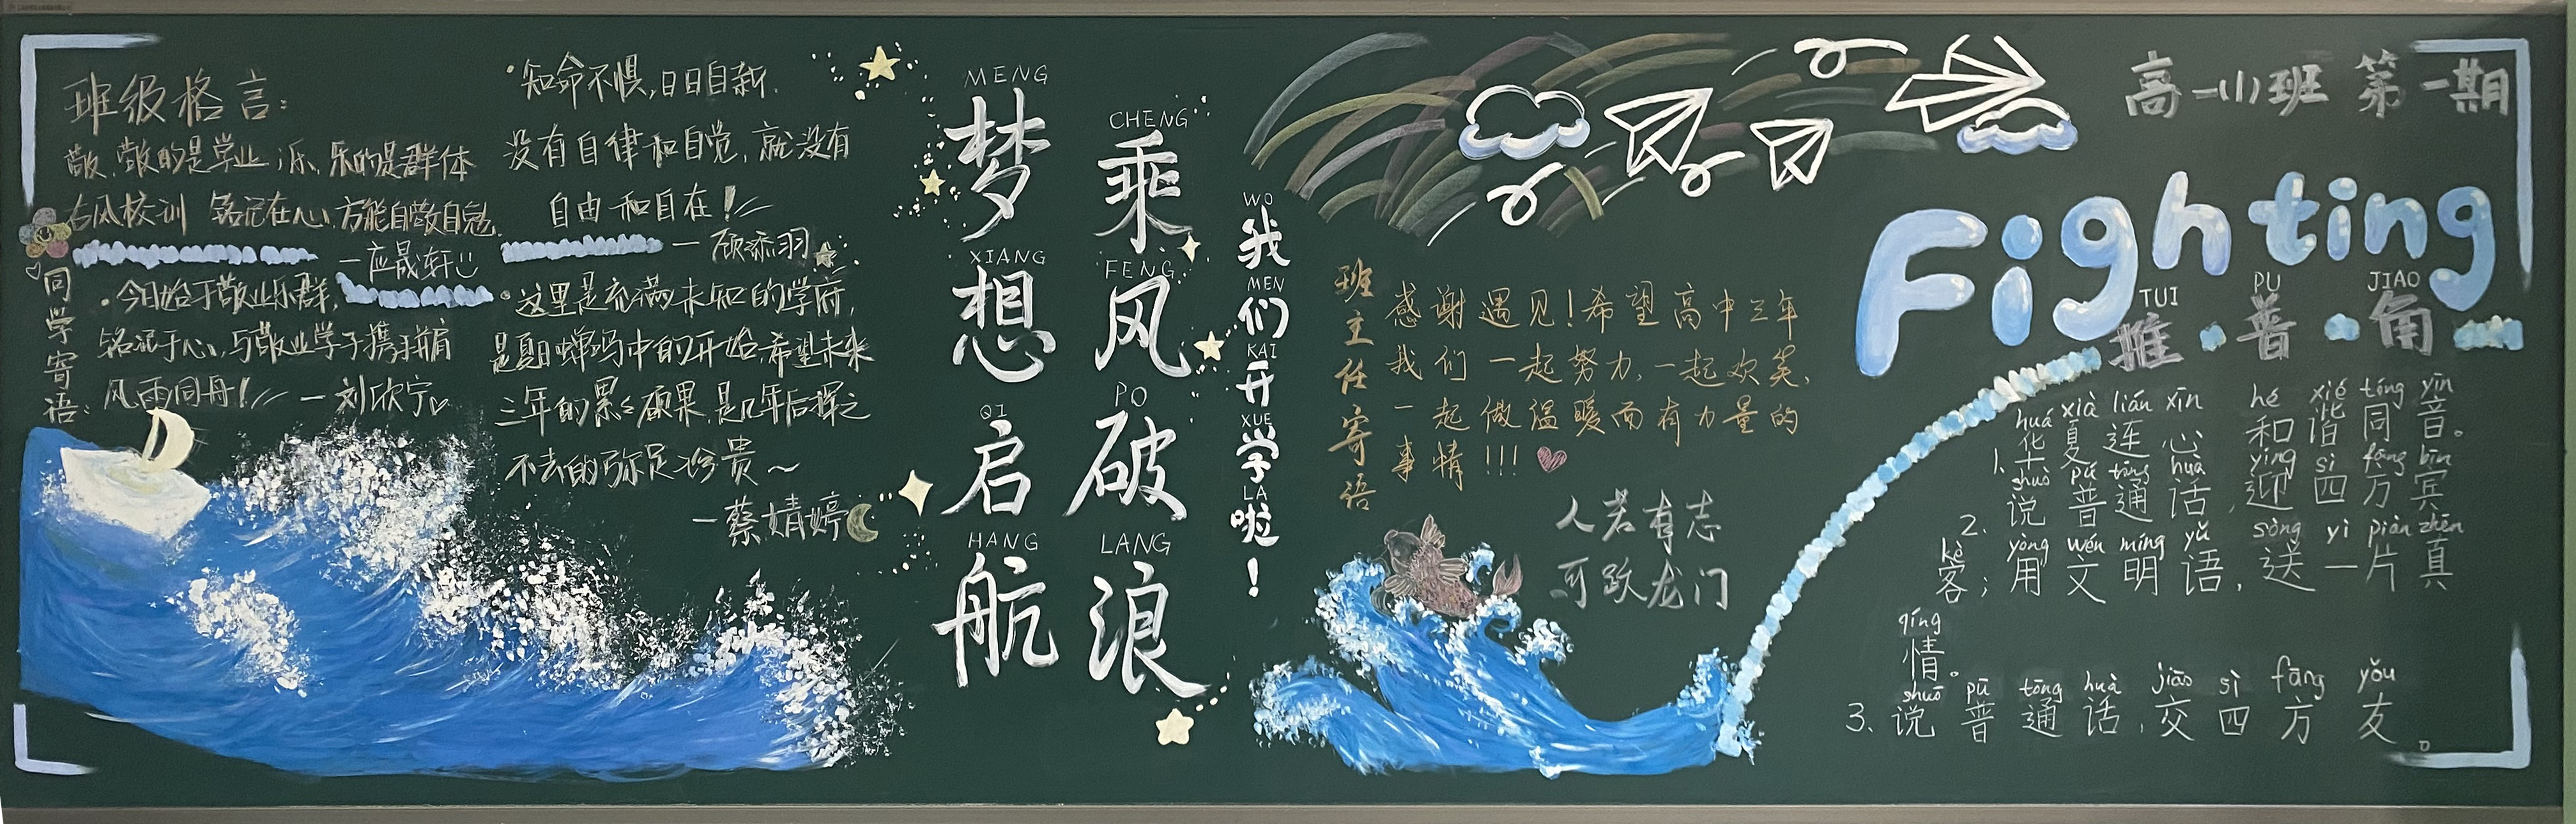 班级格言：
敬，敬的是学业；乐，乐的是群体
古风校训 铭记在心，方能自敬自勉
—应晟轩
同学寄语：
·今日始于敬业乐群，
铭记于心，与敬业学子携手并肩
风雨同舟！
—刘欣宁
·知命不惧，日日自新.
没有自律和自觉，就没有
自由和自在！
—顾添羽
·这里是充满未知的学府，
是夏日蝉鸣中的开始，希望未来
三年的累累硕果，是几年后挥之
不去的弥足珍贵～
—蔡婧婷
MENG XIANG QI HANG
梦想启航
CHENG FENG PO LANG
乘风破浪
WO MEN KAI XUE LA
我们开学啦！
班主任寄语
感谢遇见！希望高中三年
我们一起努力，一起欢笑，
一起做温暖而有力量的
事情!!!
人若有志
可跃龙门
高一(1)班 第一期
Fighting
TUI PU JIAO
推普角
huá xià lián xīn hé xié tóng yīn
1. 华夏连心 和谐同音。
shuō pǔ tōng huà yíng sì fāng bīn
2. 说普通话，迎四方宾
kè yòng wén míng yǔ sòng yì piàn zhēn
客；用文明语，送一片真
qíng
情。
shuō pǔ tōng huà jiāo sì fāng yǒu
3. 说普通话，交四方友。